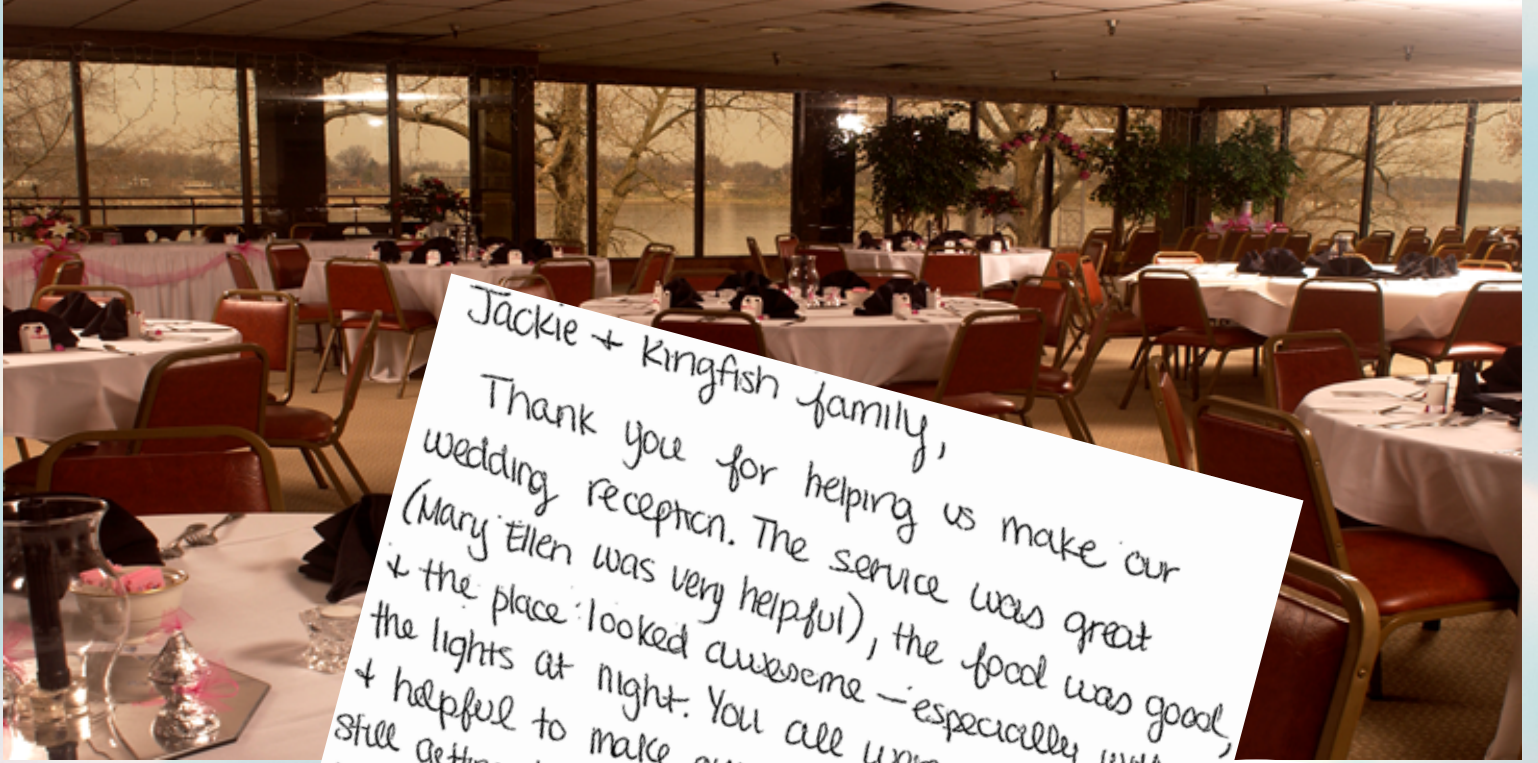 Jackie + Kingfish family,
Thank you for helping us make our
wedding reception. The service was great
(Mary Ellen was very helpful), the food was good,
+ the place looked awesome – especially with
the lights at night. You all were
+ helpful to make
still getting